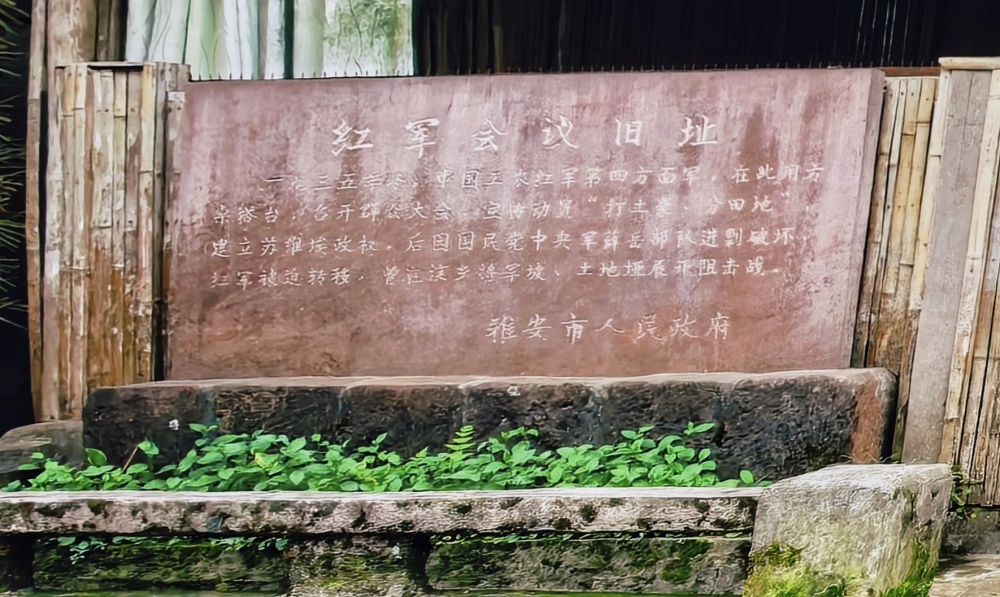 红军会议旧址
一九三五年冬，中国工农红军第四方面军，在此用方
桌搭台，召开群众大会，宣传动员“打土豪、分田地”，
建立苏维埃政权，后因国民党中央军薛岳部队进剿破坏，
红军被迫转移，曾在本乡 军坡、土地垭展开阻击战。
雅安市人民政府